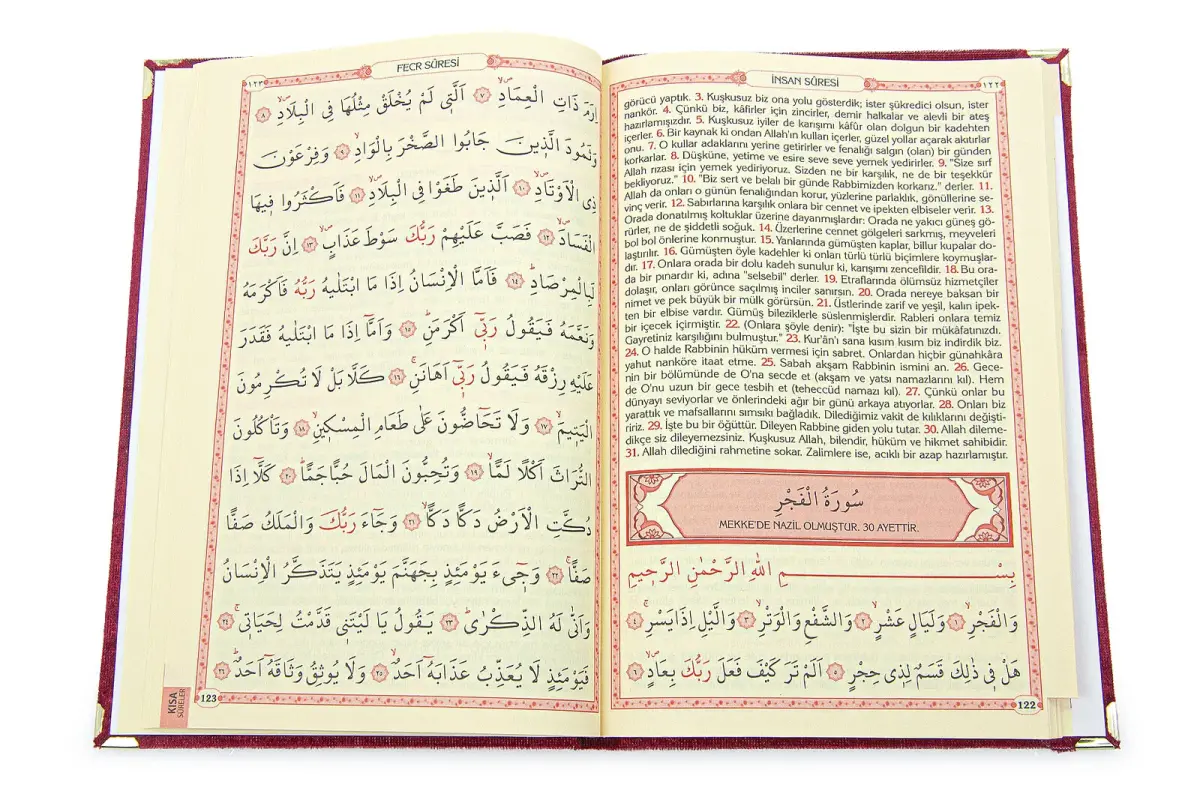 ١٢٢
İNSAN SÛRESİ
görücü yaptık. 3. Kuşkusuz biz ona yolu gösterdik; ister şükredici olsun, ister
nankör. 4. Çünkü biz, kâfirler için zincirler, demir halkalar ve alevli bir ateş
hazırlamışızdır. 5. Kuşkusuz iyiler de karışımı kâfûr olan dolgun bir kadehten
içerler. 6. Bir kaynak ki ondan Allah'ın kulları içerler, güzel yollar açarak akıtırlar
onu. 7. O kullar adaklarını yerine getirirler ve fenalığı salgın (olan) bir günden
korkarlar. 8. Düşküne, yetime ve esire seve seve yemek yedirirler. 9. "Size sırf
Allah rızası için yemek yediriyoruz. Sizden ne bir karşılık, ne de bir teşekkür
bekliyoruz." 10. "Biz sert ve belalı bir günde Rabbimizden korkarız." derler. 11.
Allah da onları o günün fenalığından korur, yüzlerine parlaklık, gönüllerine se-
vinç verir. 12. Sabırlarına karşılık onlara bir cennet ve ipekten elbiseler verir. 13.
Orada donatılmış koltuklar üzerine dayanmışlardır: Orada ne yakıcı güneş gö-
rürler, ne de şiddetli soğuk. 14. Üzerlerine cennet gölgeleri sarkmış, meyveleri
bol bol önlerine konmuştur. 15. Yanlarında gümüşten kaplar, billur kupalar do-
laştırılır. 16. Gümüşten öyle kadehler ki onları türlü türlü biçimlere koymuşlar-
dır. 17. Onlara orada bir dolu kadeh sunulur ki, karışımı zencefildir. 18. Bu ora-
da bir pınardır ki, adına "selsebil" derler. 19. Etraflarında ölümsüz hizmetçiler
dolaşır, onları görünce saçılmış inciler sanırsın. 20. Orada nereye baksan bir
nimet ve pek büyük bir mülk görürsün. 21. Üstlerinde zarif ve yeşil, kalın ipek-
ten bir elbise vardır. Gümüş bileziklerle süslenmişlerdir. Rableri onlara temiz
bir içecek içirmiştir. 22. (Onlara şöyle denir): "İşte bu sizin bir mükâfatınızdı.
Gayretiniz karşılığını bulmuştur." 23. Kur'ân'ı sana kısım kısım biz indirdik biz.
24. O halde Rabbinin hüküm vermesi için sabret. Onlardan hiçbir günahkâra
yahut nanköre itaat etme. 25. Sabah akşam Rabbinin ismini an. 26. Gece-
nin bir bölümünde de O'na secde et (akşam ve yatsı namazlarını kıl). Hem
de O'nu uzun bir gece tesbih et (teheccüd namazı kıl). 27. Çünkü onlar bu
dünyayı seviyorlar ve önlerindeki ağır bir günü arkaya atıyorlar. 28. Onları biz
yarattık ve mafsallarını sımsıkı bağladık. Dilediğimiz vakit de kılıklarını değişti-
ririz. 29. İşte bu bir öğüttür. Dileyen Rabbine giden yolu tutar. 30. Allah dileme-
dikçe siz dileyemezsiniz. Kuşkusuz Allah, bilendir, hüküm ve hikmet sahibidir.
31. Allah dilediğini rahmetine sokar. Zalimlere ise, acıklı bir azap hazırlamıştır.
سُورَةُ الْفَجْرِ
MEKKE'DE NAZİL OLMUŞTUR. 30 AYETTİR.
بِسْمِ اللّٰهِ الرَّحْمٰنِ الرَّح۪يمِ
وَالْفَجْرِۙ ﴿١﴾ وَلَيَالٍ عَشْرٍۙ ﴿٢﴾ وَالشَّفْعِ وَالْوَتْرِۙ ﴿٣﴾ وَالَّيْلِ اِذَا يَسْرِۚ ﴿٤﴾
هَلْ ف۪ي ذٰلِكَ قَسَمٌ لِذ۪ي حِجْرٍۜ ﴿٥﴾ اَلَمْ تَرَ كَيْفَ فَعَلَ رَبُّكَ بِعَادٍۙۖ ﴿٦﴾
122
١٢٣
FECR SÛRESİ
اِرَمَ ذَاتِ الْعِمَادِۙۖ ﴿٧﴾ اَلَّت۪ي لَمْ يُخْلَقْ مِثْلُهَا فِي الْبِلَادِۙۖ ﴿٨﴾
وَثَمُودَ الَّذ۪ينَ جَابُوا الصَّخْرَ بِالْوَادِۙۖ ﴿٩﴾ وَفِرْعَوْنَ
ذِي الْاَوْتَادِۙۖ ﴿١٠﴾ اَلَّذ۪ينَ طَغَوْا فِي الْبِلَادِۙۖ ﴿١١﴾ فَاَكْثَرُوا ف۪يهَا
الْفَسَادَۙۖ ﴿١٢﴾ فَصَبَّ عَلَيْهِمْ رَبُّكَ سَوْطَ عَذَابٍۙۖ ﴿١٣﴾ اِنَّ رَبَّكَ
لَبِالْمِرْصَادِۜ ﴿١٤﴾ فَاَمَّا الْاِنْسَانُ اِذَا مَا ابْتَلٰيهُ رَبُّهُ فَاَكْرَمَهُ
وَنَعَّمَهُ فَيَقُولُ رَبّ۪ٓي اَكْرَمَنِۜ ﴿١٥﴾ وَاَمَّٓا اِذَا مَا ابْتَلٰيهُ فَقَدَرَ
عَلَيْهِ رِزْقَهُ فَيَقُولُ رَبّ۪ٓي اَهَانَنِۚ ﴿١٦﴾ كَلَّا بَلْ لَا تُكْرِمُونَ
الْيَت۪يمَۙ ﴿١٧﴾ وَلَا تَحَٓاضُّونَ عَلٰى طَعَامِ الْمِسْك۪ينِۙ ﴿١٨﴾ وَتَأْكُلُونَ
التُّرَاثَ اَكْلًا لَمًّاۙ ﴿١٩﴾ وَتُحِبُّونَ الْمَالَ حُبًّا جَمًّاۜ ﴿٢٠﴾ كَلَّٓا اِذَا
دُكَّتِ الْاَرْضُ دَكًّا دَكًّاۙ ﴿٢١﴾ وَجَٓاءَ رَبُّكَ وَالْمَلَكُ صَفًّا
صَفًّاۚ ﴿٢٢﴾ وَج۪ٓيءَ يَوْمَئِذٍ بِجَهَنَّمَ يَوْمَئِذٍ يَتَذَكَّرُ الْاِنْسَانُ
وَاَنّٰى لَهُ الذِّكْرٰىۜ ﴿٢٣﴾ يَقُولُ يَا لَيْتَن۪ي قَدَّمْتُ لِحَيَات۪يۚ ﴿٢٤﴾
فَيَوْمَئِذٍ لَا يُعَذِّبُ عَذَابَهُٓ اَحَدٌۙ ﴿٢٥﴾ وَلَا يُوثِقُ وَثَاقَهُٓ اَحَدٌۜ ﴿٢٦﴾
123
KISA
SÛRELER